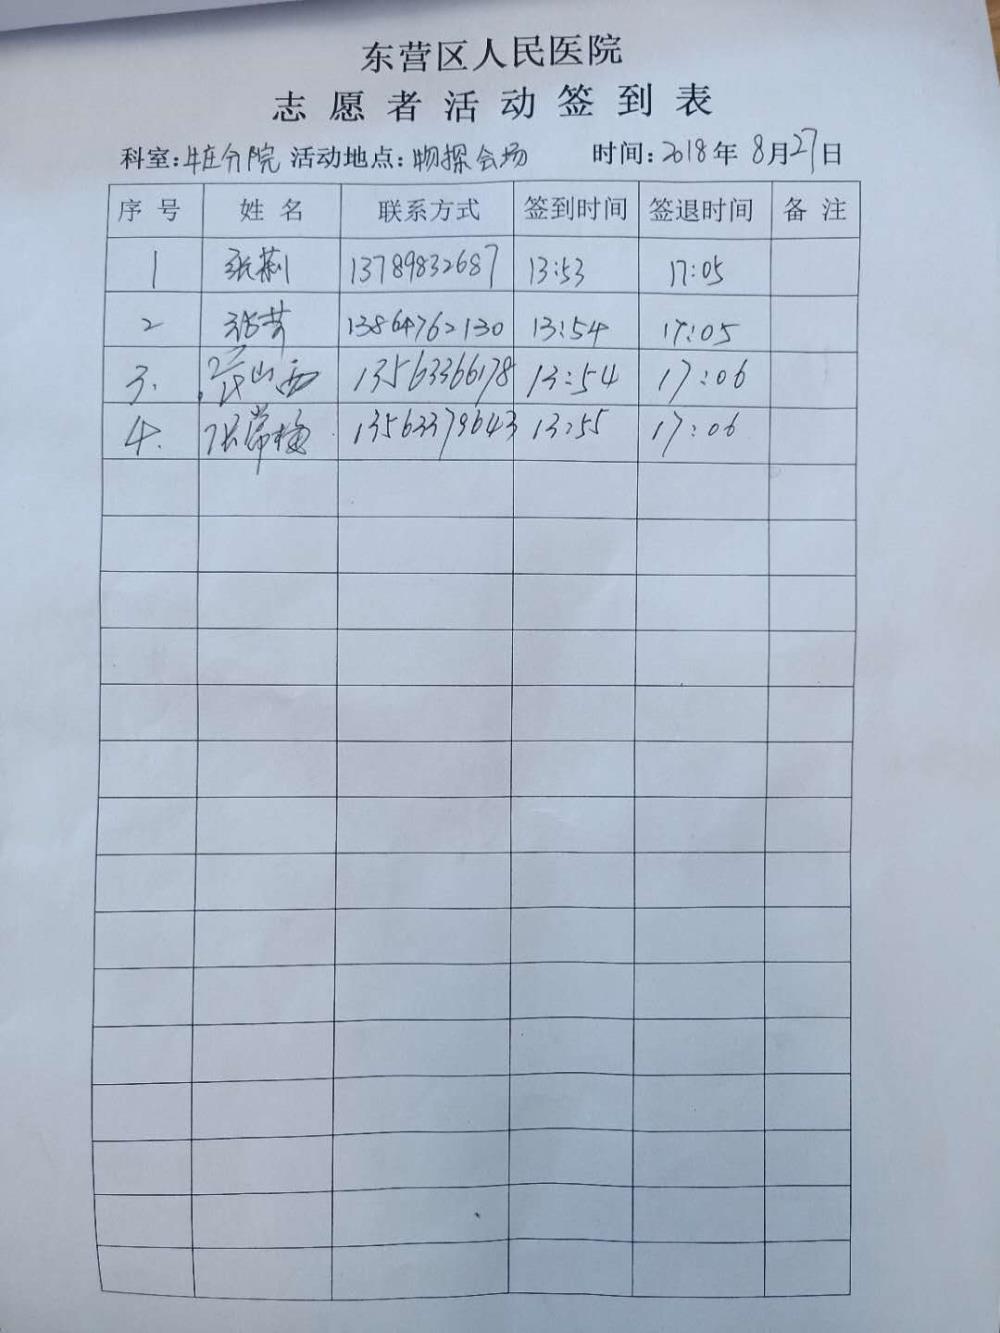 东营区人民医院
志愿者活动签到表
科室:牛庄分院 活动地点:物探会场 时间:2018年8月27日
序号 姓名 联系方式 签到时间 签退时间 备注
1 张莉 13789832687 13:53 17:05
2 张芳 13864762130 13:54 17:05
3. 13563366178 13:54 17:06
4. 张常梅 13563379643 13:55 17:06